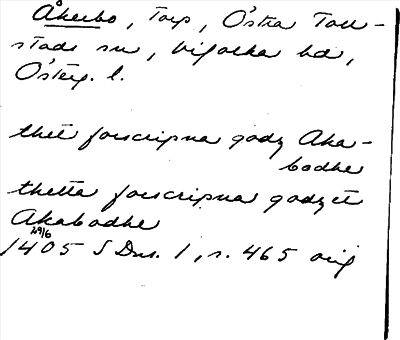 Åkerbo, Torp, Östra Toll-
stads sn, Vifolka hd,
Österg. l.
thet forscripna godz Aka-
bodhe
thetta forscripna godzet
Akabodhe
1405 29/6 SDns. 1, s. 465 orig